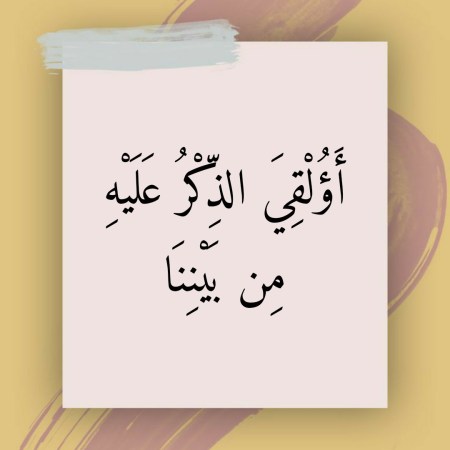 أَؤُلْقِيَ الذِّكْرُ عَلَيْهِ
مِن بَيْنِنَا